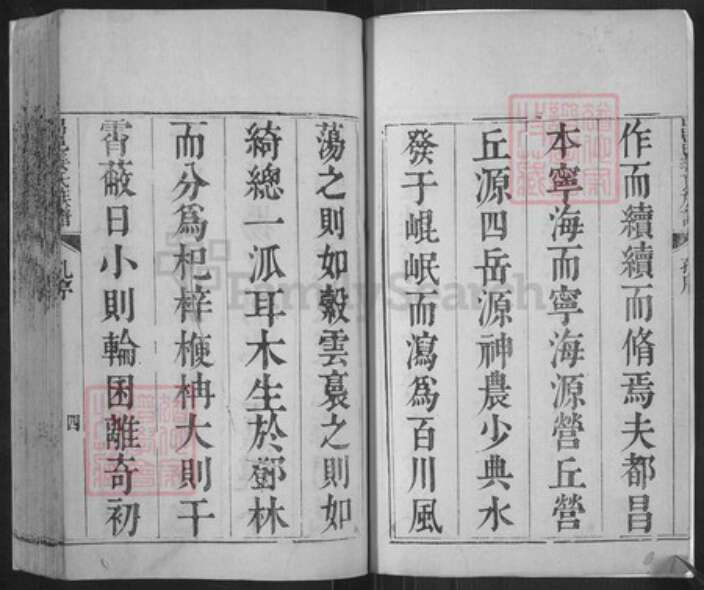 作而續續而脩焉夫都昌
本寧海而寧海源營丘營
丘源四岳源神農少典水
發于崐岷而瀉爲百川風
蕩之則如縠雲裹之則如
綺總一派耳木生於鄧林
而分爲杞梓楩柟大則干
霄蔽日小則輪囷離奇初
四
FamilySearch